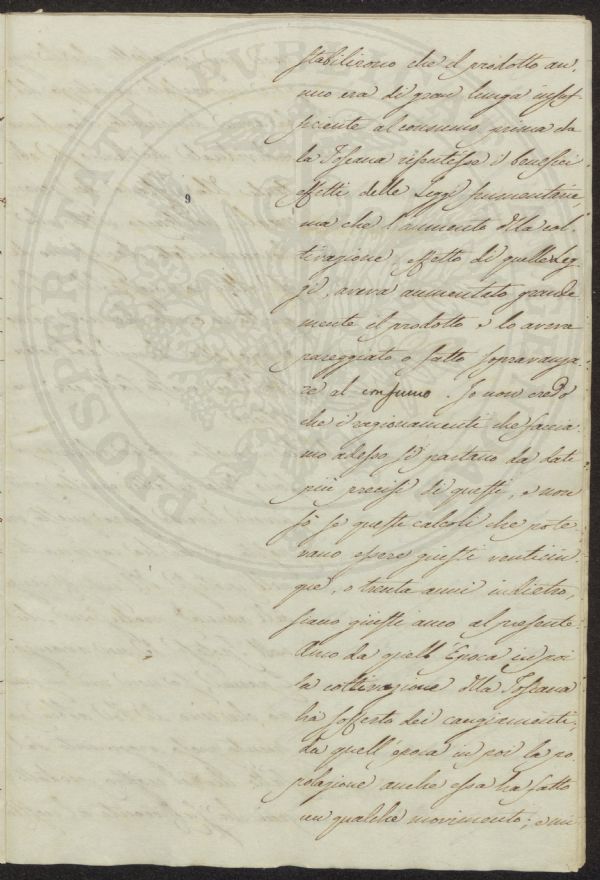 stabilirono che il prodotto an-
nuo era di gran lunga insuf-
ficiente al consumo prima da
la Toscana risentesse i benefici
effetti delle Leggi frumentarie,
ma che l'aumento della col-
tivazione, effetto di quelle Leg-
gi, aveva aumentato grande
mente il prodotto e lo aveva
pareggiato o fatto sopravanza-
re al consumo. Io non credo
che i ragionamenti che faccia-
mo adesso si partano da dati
più precisi di questi, e non
so se questi calcoli che pote
vano essere giusti venticin-
que, o trenta anni indietro,
siano giusti anco al presente.
Anco da quell'Epoca in poi
la coltivazione della Toscana
ha sofferto dei cangiamenti,
da quell'epoca in poi la po-
polazione anche essa ha fatto
un qualche movimento; e mi
9
PROSPERITATI PUBLICAE